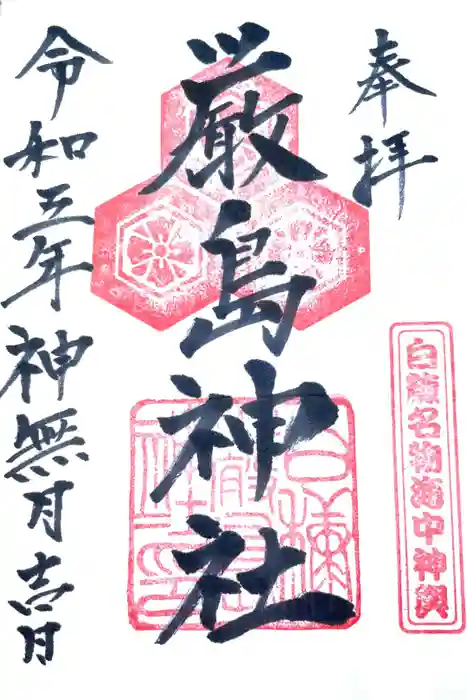 奉拝
厳島神社
令和五年神無月吉日
白糠名物海中神輿